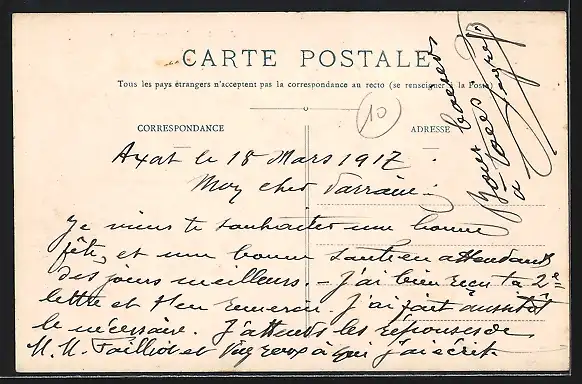 CARTE POSTALE
Tous les pays étrangers n'acceptent pas la correspondance au recto (se renseigner à la Poste)
10
CORRESPONDANCE
ADRESSE
Axat le 18 Mars 1917
Mon cher Parrain
Je viens te souhaiter une bonne
fête, et une bonne santé en attendant
des jours meilleurs. - J'ai bien reçu ta 2e
lettre et t'en remercie. J'ai fait aussitôt
le nécessaire. J'attends les réponses de
M. M. Tailliot et à qui j'ai écrit.
Bons baisers
à